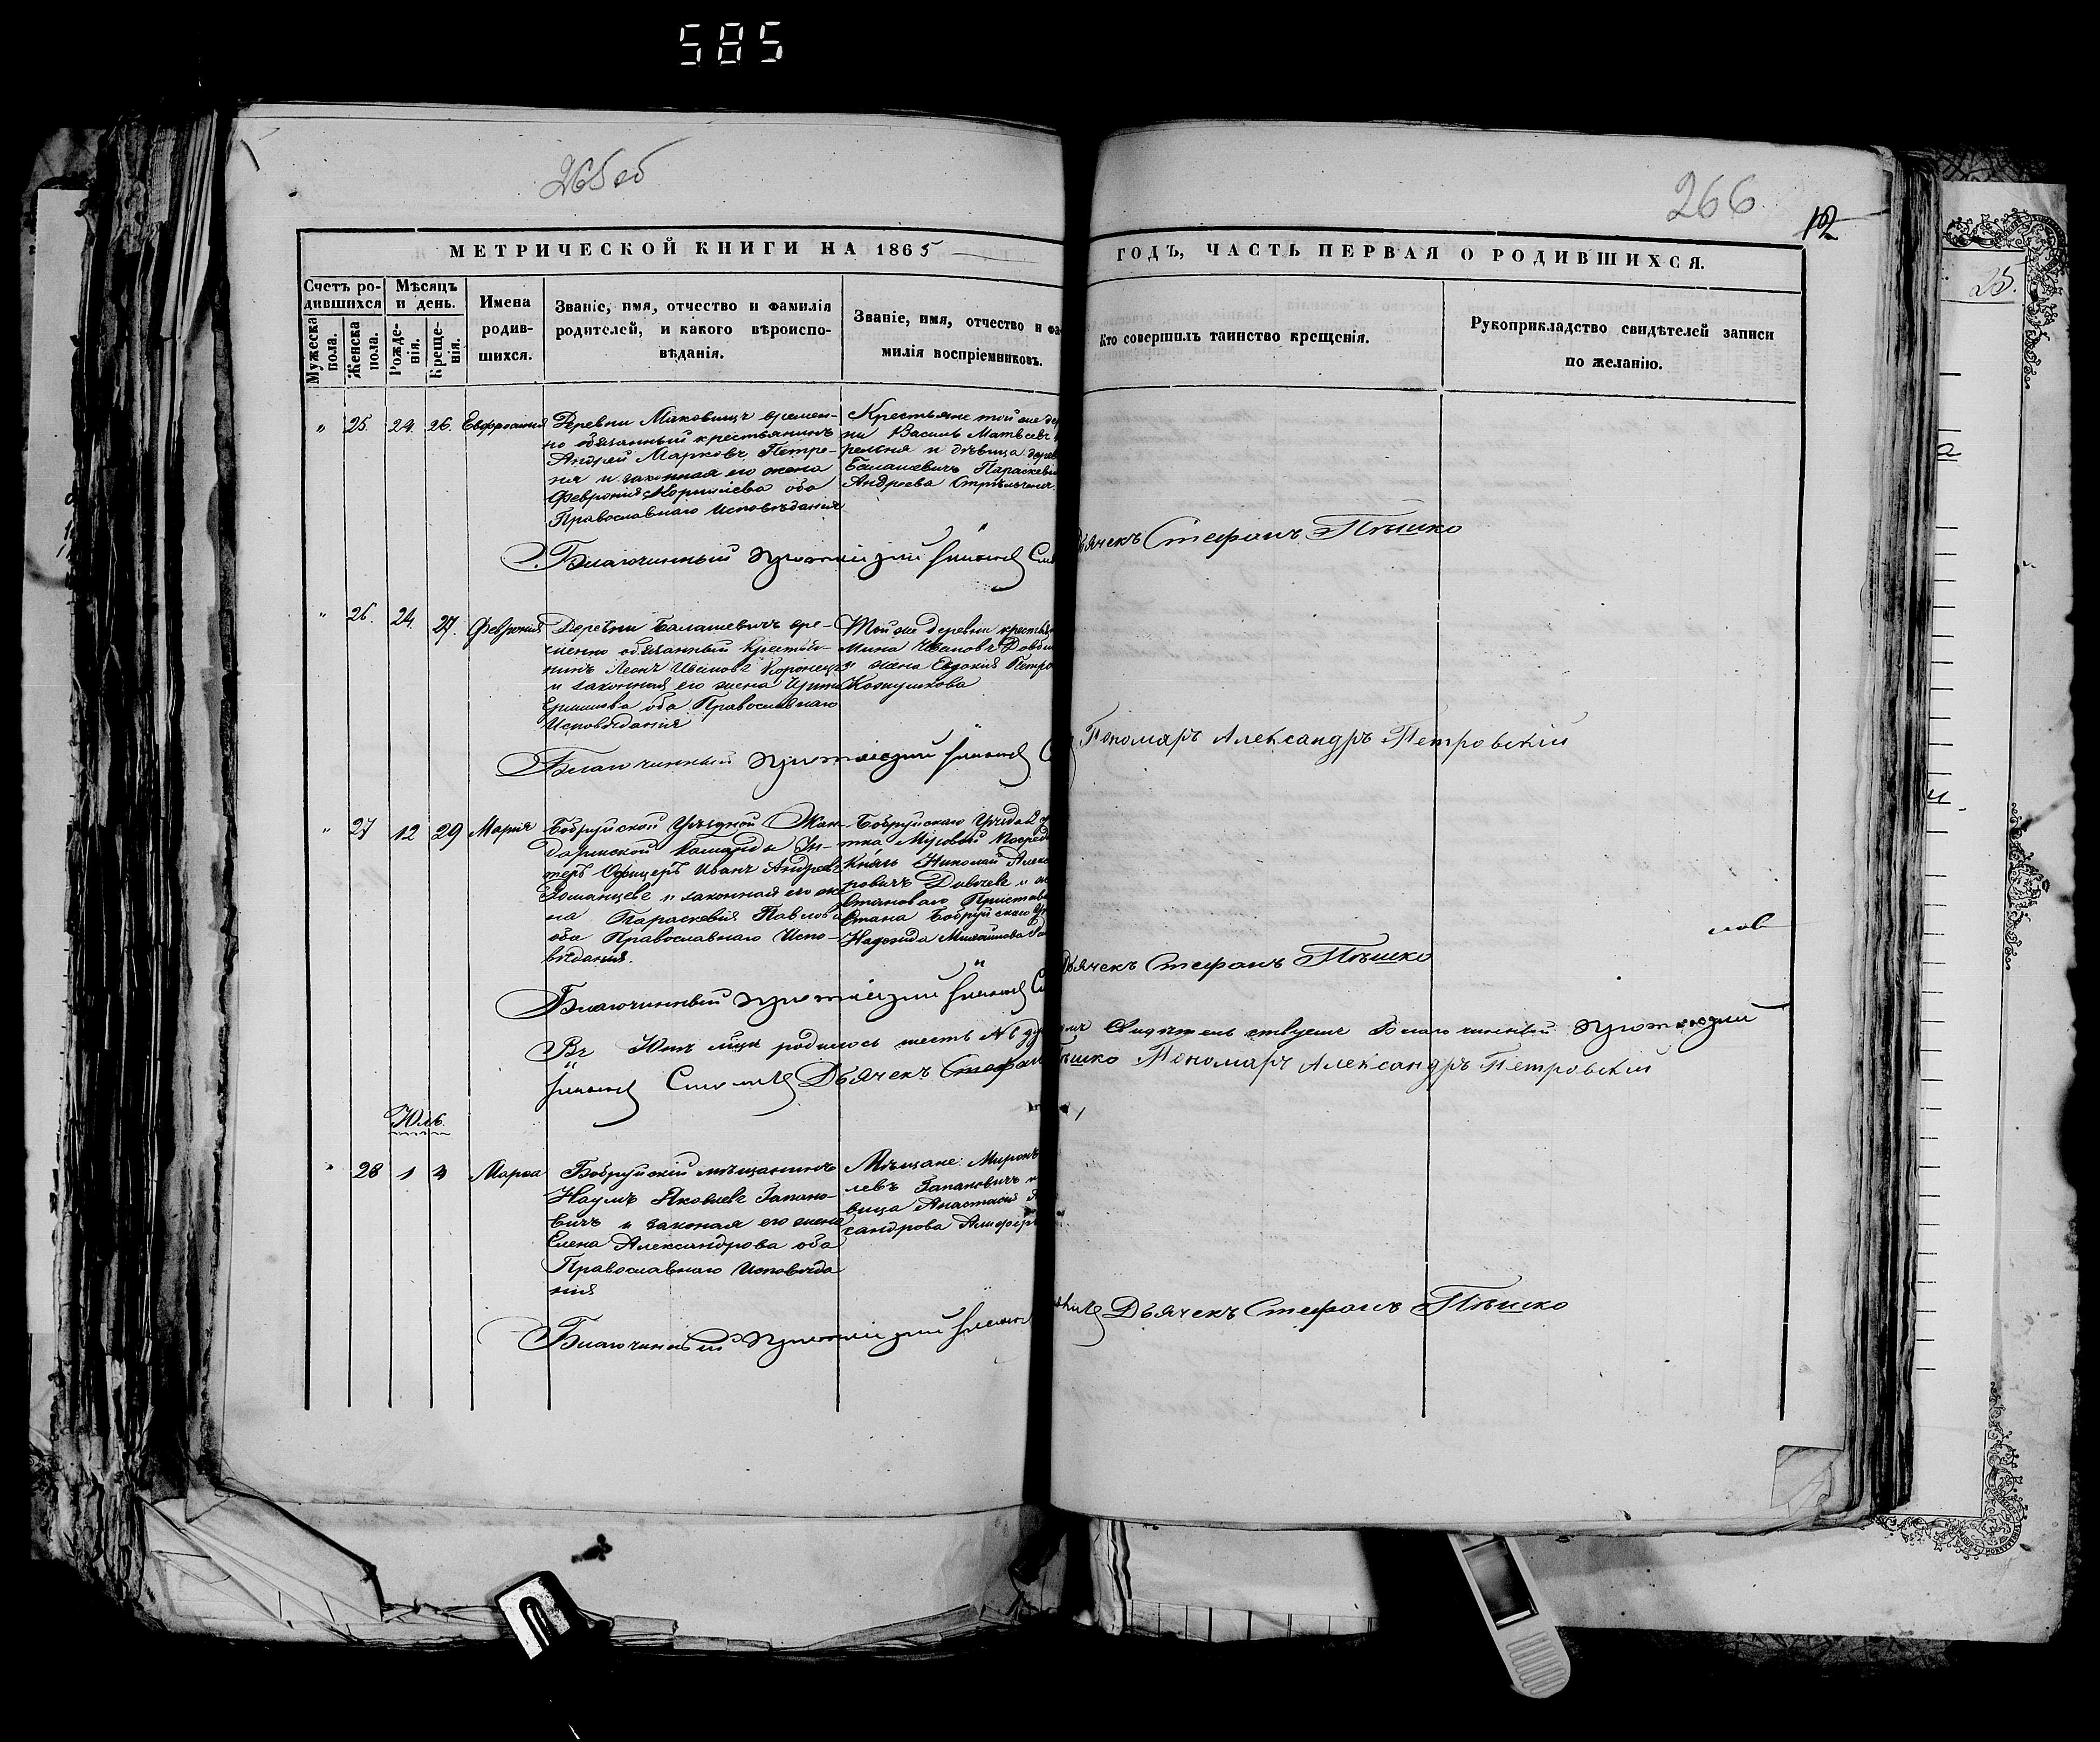 585
265 об
266
МЕТРИЧЕСКОЙ КНИГИ НА 1865
ГОДЪ, ЧАСТЬ ПЕРВАЯ О РОДИВШИХСЯ.
25.
Счетъ ро-
дившихся
Мужеска
пола.
Женска
пола.
Мѣсяцъ
и день.
Рожде-
нія.
Креще-
нія.
Имена
родив-
шихся.
Званіе, имя, отчество и фамилія
родителей, и какого вѣроиспо-
вѣданія.
Званіе, имя, отчество и фа-
милія воспріемниковъ.
Кто совершилъ таинство крещенія.
Рукоприкладство свидѣтелей записи
по желанію.
" 25. 24. 26. Евфросинія
Деревни Маковищъ времен-
но обязанный крестьянинъ
Андрей Марковъ Петре-
ня и законная его жена
Феврония Корнилева оба
Православнаго Исповѣданія
Крестьяне той же дер
ни Василь Матвеевъ
и дѣвица дерев
Балашевичъ Параскевія
Андреева
Благочинный
Дьячекъ Стефанъ Пѣшко
" 26. 24. 27. Февронія
Деревни Балашевичъ вре-
менно обязанный Крестья-
нинъ Леонъ Ивановъ Коронецъ
и законная его жена Ирина
оба Православнаго
Исповѣданія
Той же деревни крестья
Мина Ивановъ
и жена Евдокия Петро
Кожушкова
Благочинный
Пономарь Александръ Петровскій
" 27 12 29 Марія
Бобруйской Уѣздной Жан-
дармской Команды Ун-
теръ Офицеръ Иванъ Андреевъ
и законная его же
на Параскевія Павлова
оба Православнаго Испо-
вѣданія.
Бобруйскаго Уѣзда
Мировой Посред
Князь Николай Алекс
ровичъ
Становаго Пристава
Стана Бобруйскаго У
Надежда
Благочинный
Дьячекъ Стефанъ Пѣшко
Въ Юнѣ мцѣ родилось шесть
Свидѣтельствуемъ Благочинный
Дьячекъ Стефанъ Пѣшко Пономарь Александръ Петровскій
Юль.
" 28 1 4 Марѳа
Бобруйскій мѣщанинъ
Наумъ Яковлевъ Запано-
вичъ и законая его жена
Елена Александрова оба
Православнаго Исповѣда
нія
Мѣщане: Миронъ
левъ Запановичъ и
вица Анастасія
сандрова
Благочинный
Дьячекъ Стефанъ Пѣшко